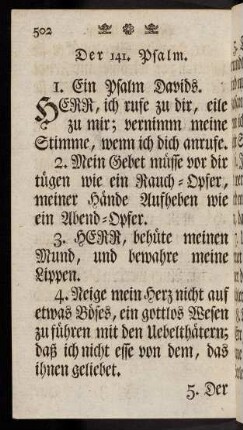 502
Der 141. Psalm.
1. Ein Psalm Davids.
HERR, ich rufe zu dir, eile
zu mir; vernimm meine
Stimme, wenn ich dich anrufe.
2. Mein Gebet müsse vor dir
tügen wie ein Rauch-Opfer,
meiner Hände Aufheben wie
ein Abend-Opfer.
3. HERR, behüte meinen
Mund, und bewahre meine
Lippen.
4. Neige mein Herz nicht auf
etwas Böses, ein gottlos Wesen
zu führen mit den Uebelthätern;
daß ich nicht esse von dem, das
ihnen geliebet.
5. Der